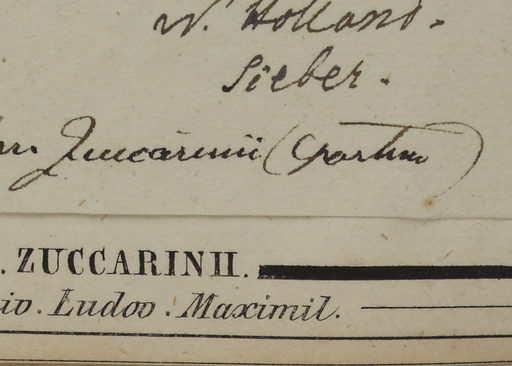 N. Holland.
Sieber.
Zuccarinii (
. ZUCCARINII.
io. Ludov. Maximil.